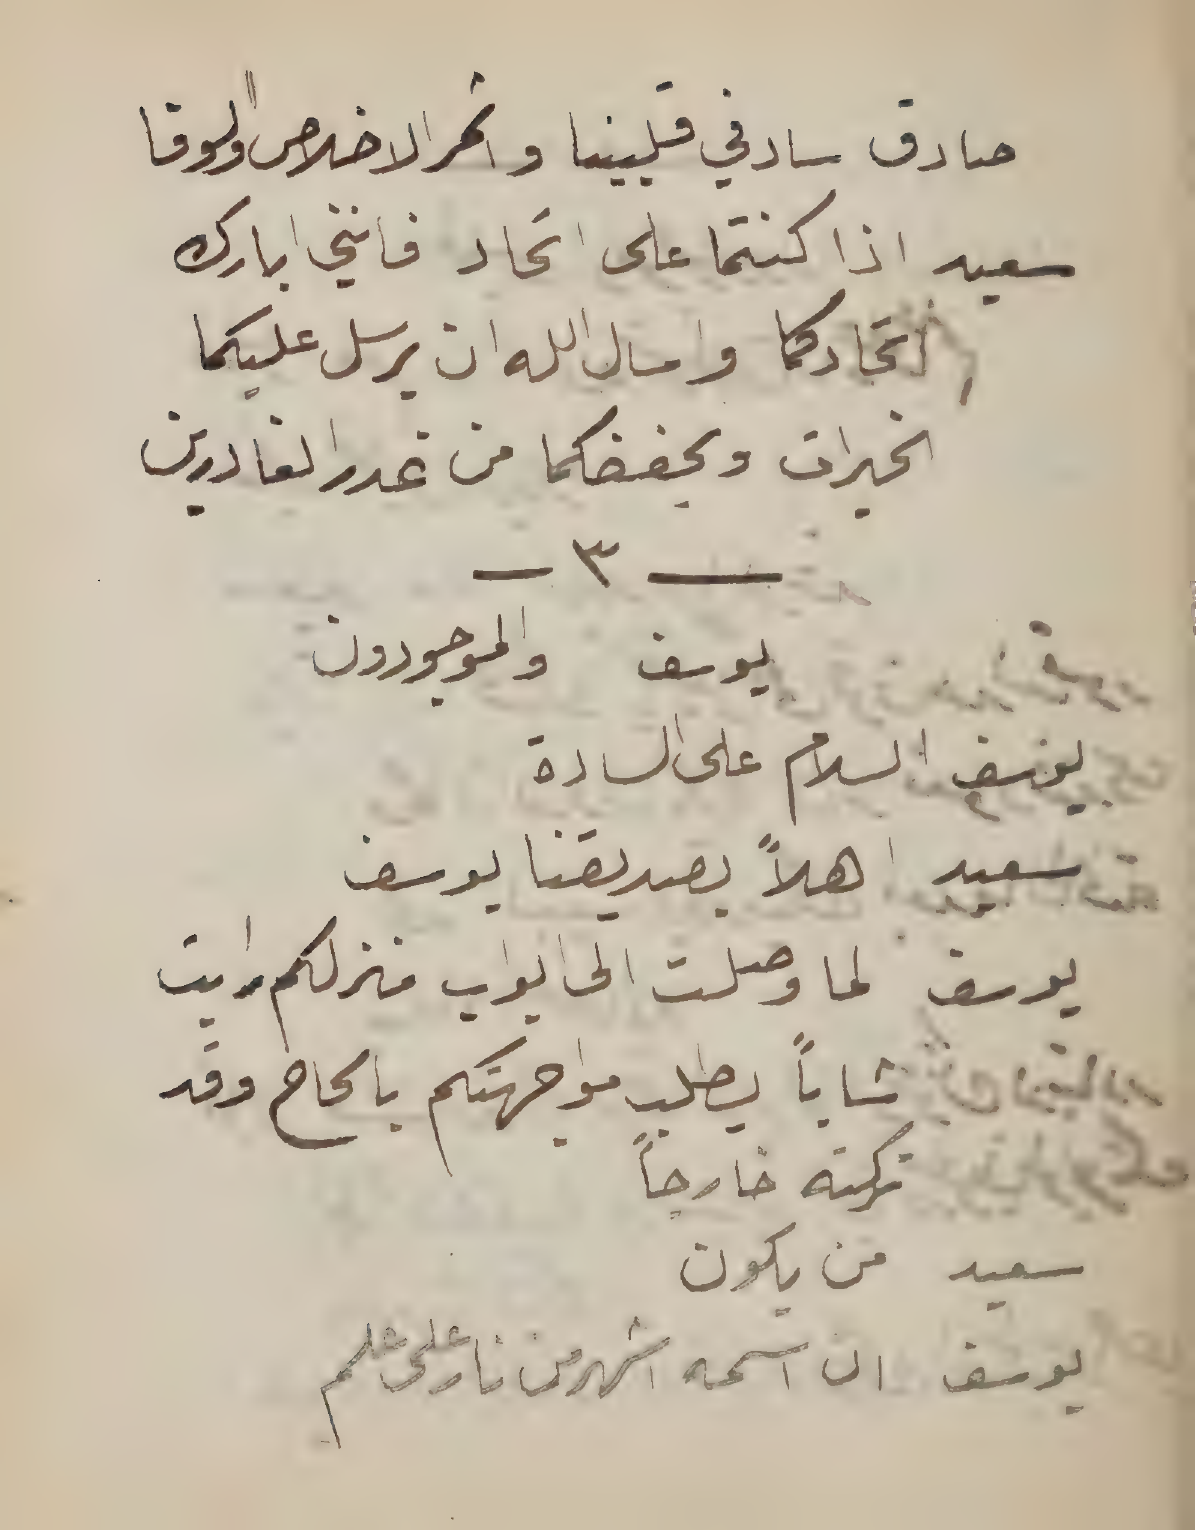 صادق ساد في قلبينا واثمر الاخلاص والوفا
سعيد اذا كنتما على اتحاد فانني ابارك
اتحادكما واسال الله ان يرسل عليكما
الخيرات ويحفضكما من غدر الغادرين
— ٣ —
يوسف والموجودون
يوسف السلام على السادة
سعيد اهلاً بصديقنا يوسف
يوسف لما وصلت الى ابواب منزلكم رايت
شاباً يطلب مواجهتكم بالحاح وقد
تركته خارجاً
سعيد من يكون
يوسف ان اسمه اشهر من نار على علم